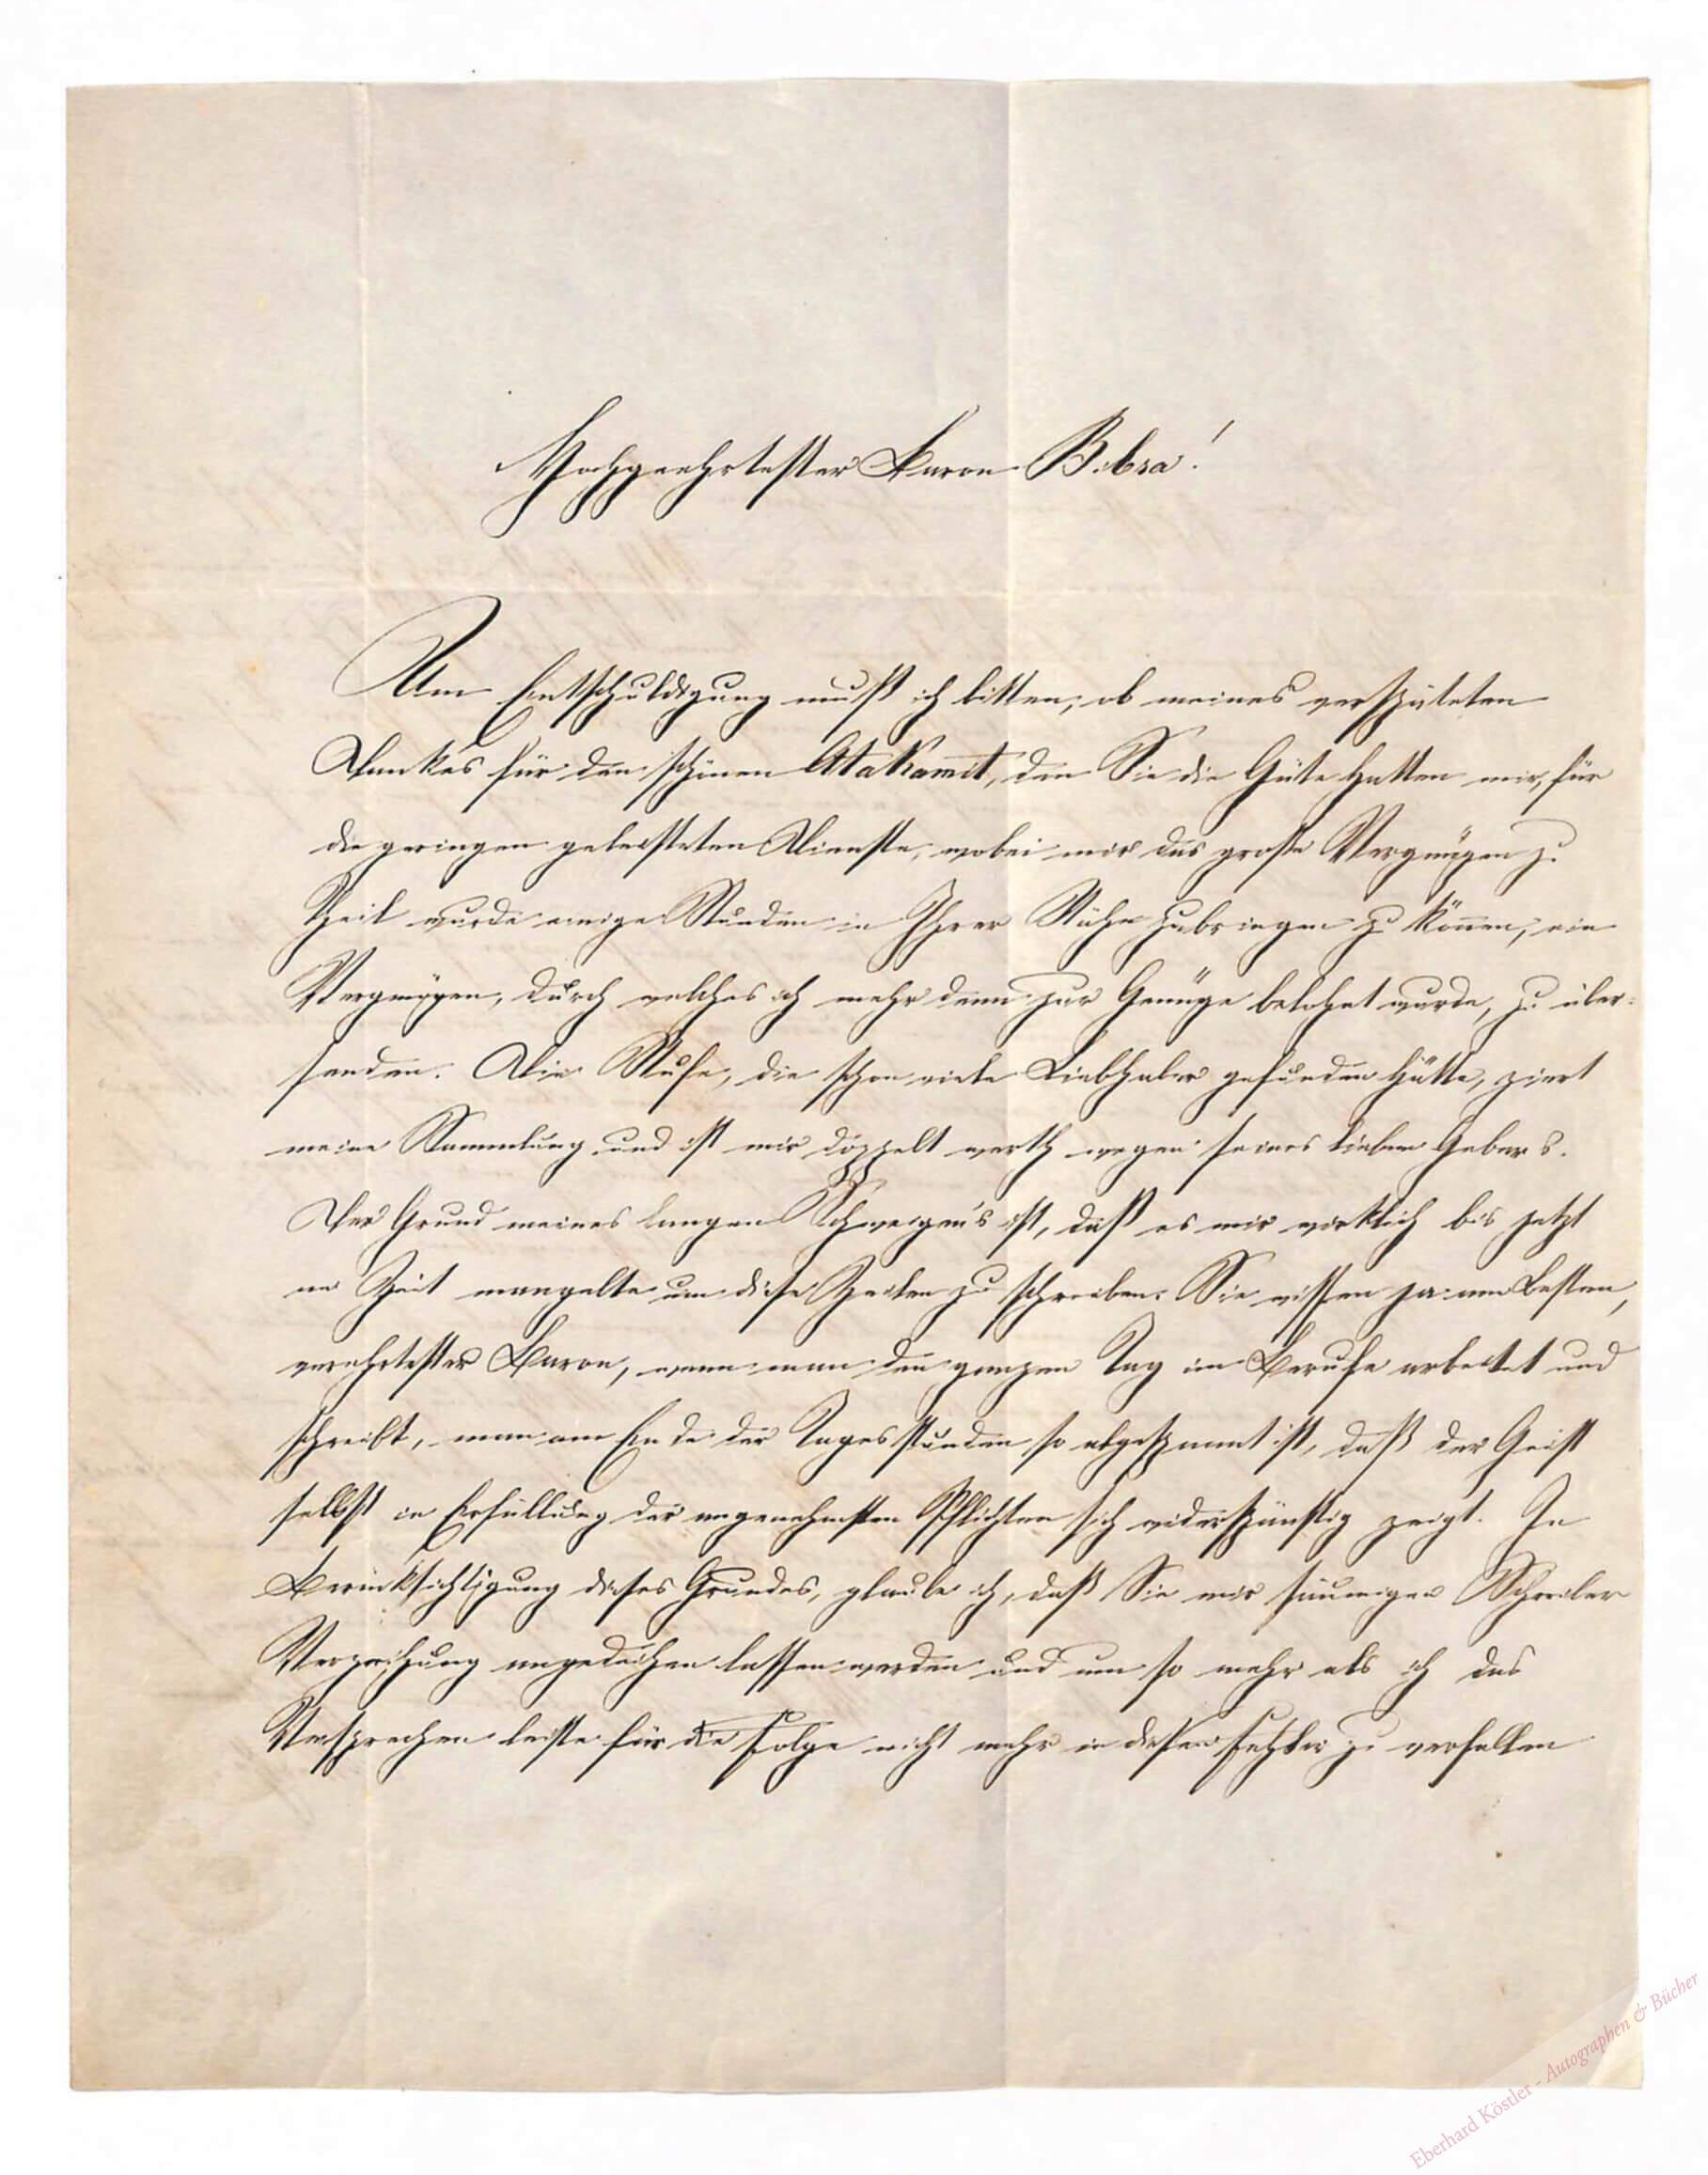 Hochgeehrtester Baron Bibra!
Um Entschuldigung muß ich bitten, ob meines verspäteten
Dankes für den schönen Atakamit, den Sie die Güte hatten mir, für
die geringen geleisteten Dienste, wobei mir das große Vergnügen zu
Theil wurde einige Stunden in Ihrer Nähe zubringen zu können, ein
Vergnügen, durch welches ich mehr denn zur Genüge belohnt wurde, zu über-
senden. Die Stufe, die schon viele Liebhaber gefunden hätte, ziert
meine Sammlung und ist mir doppelt werth wegen seines lieben Gebers.
Der Grund meines langen Schweigens ist, daß es mir wirklich bis jetzt
an Zeit mangelte um diese Zeilen zu schreiben. Sie wissen ja am Besten,
verehrtester Baron, wenn man den ganzen Tag im Berufe arbeitet und
schreibt, man am Ende der Tagesstunden so abgespannt ist, daß der Geist
selbst in Erfüllung der angenehmsten Pflichten sich widerspänstig zeigt. In
Berücksichtigung dieses Grundes, glaube ich, daß Sie mir säumigen Schreiber
Verzeihung angedeihen lassen werden und um so mehr als ich das
Versprechen leiste für die Folge nicht mehr in diesen Fehler zu verfallen
Eberhard Köstler - Autographen & Bücher